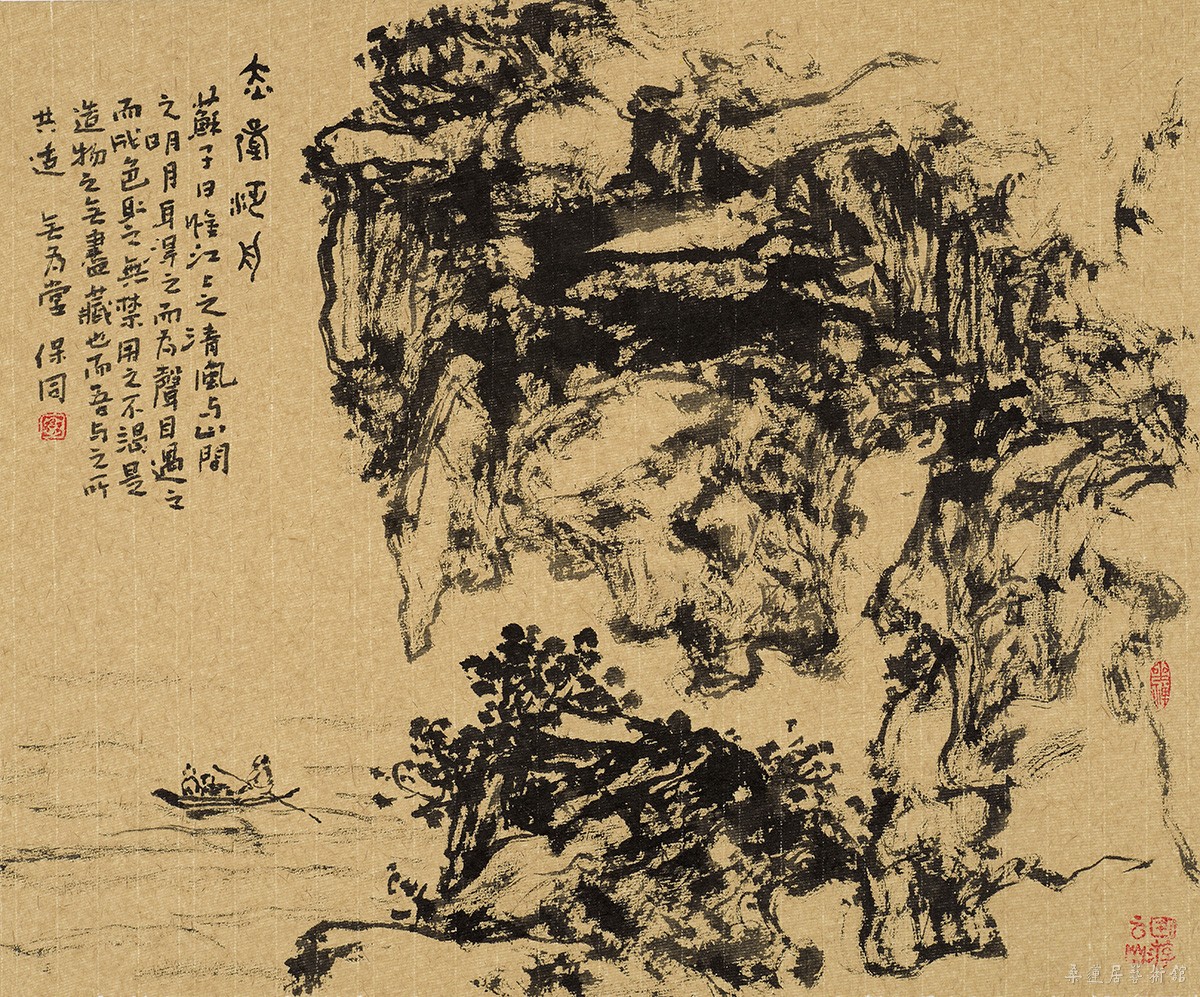 赤壁泛月
蘇子曰惟江上之清風与山間
之明月耳得之而为聲目遇之
而成色取之無禁用之不竭是
造物之无盡藏也而吾与之所
共适 无为堂 保同
桑蓮居藝術館